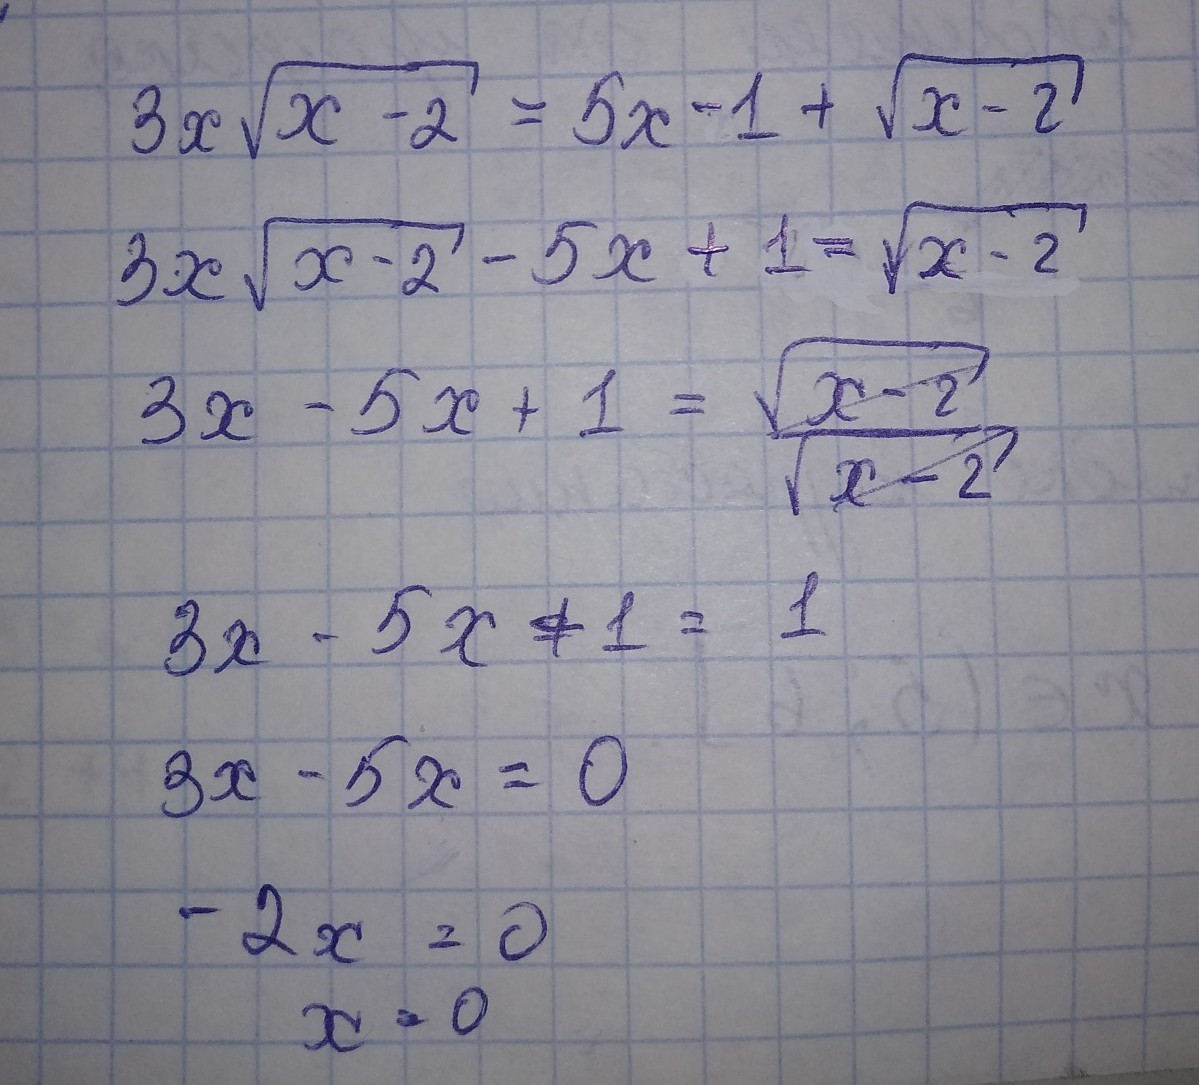 3x√(x-2) = 5x-1+√(x-2)
3x√(x-2) - 5x + 1 = √(x-2)
3x - 5x + 1 = √(x-2) / √(x-2)
3x - 5x + 1 = 1
3x - 5x = 0
-2x = 0
x = 0